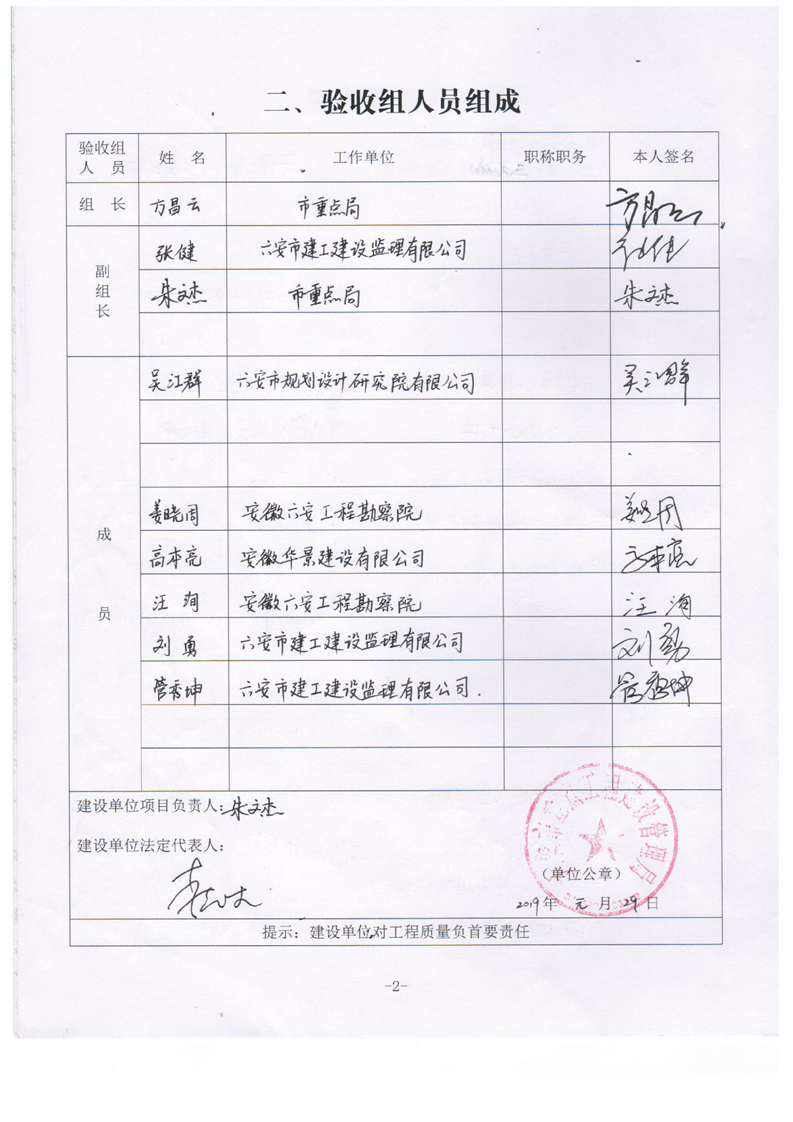 二、验收组人员组成
验收组人员 姓 名 工作单位 职称职务 本人签名
组 长 方昌云 市重点局 方昌云
副组长 张健 六安市建工建设监理有限公司
朱文杰 市重点局 朱文杰
成员 吴江群 六安市规划设计研究院有限公司 吴江群
姜晓周 安徽六安工程勘察院
高本亮 安徽华景建设有限公司 高本亮
汪洵 安徽六安工程勘察院 汪洵
刘勇 六安市建工建设监理有限公司 刘勇
管秀坤 六安市建工建设监理有限公司.
建设单位项目负责人:朱文杰
建设单位法定代表人:
重点工程建设管理局
(单位公章)
2019年 元 月 29 日
提示：建设单位对工程质量负首要责任
-2-